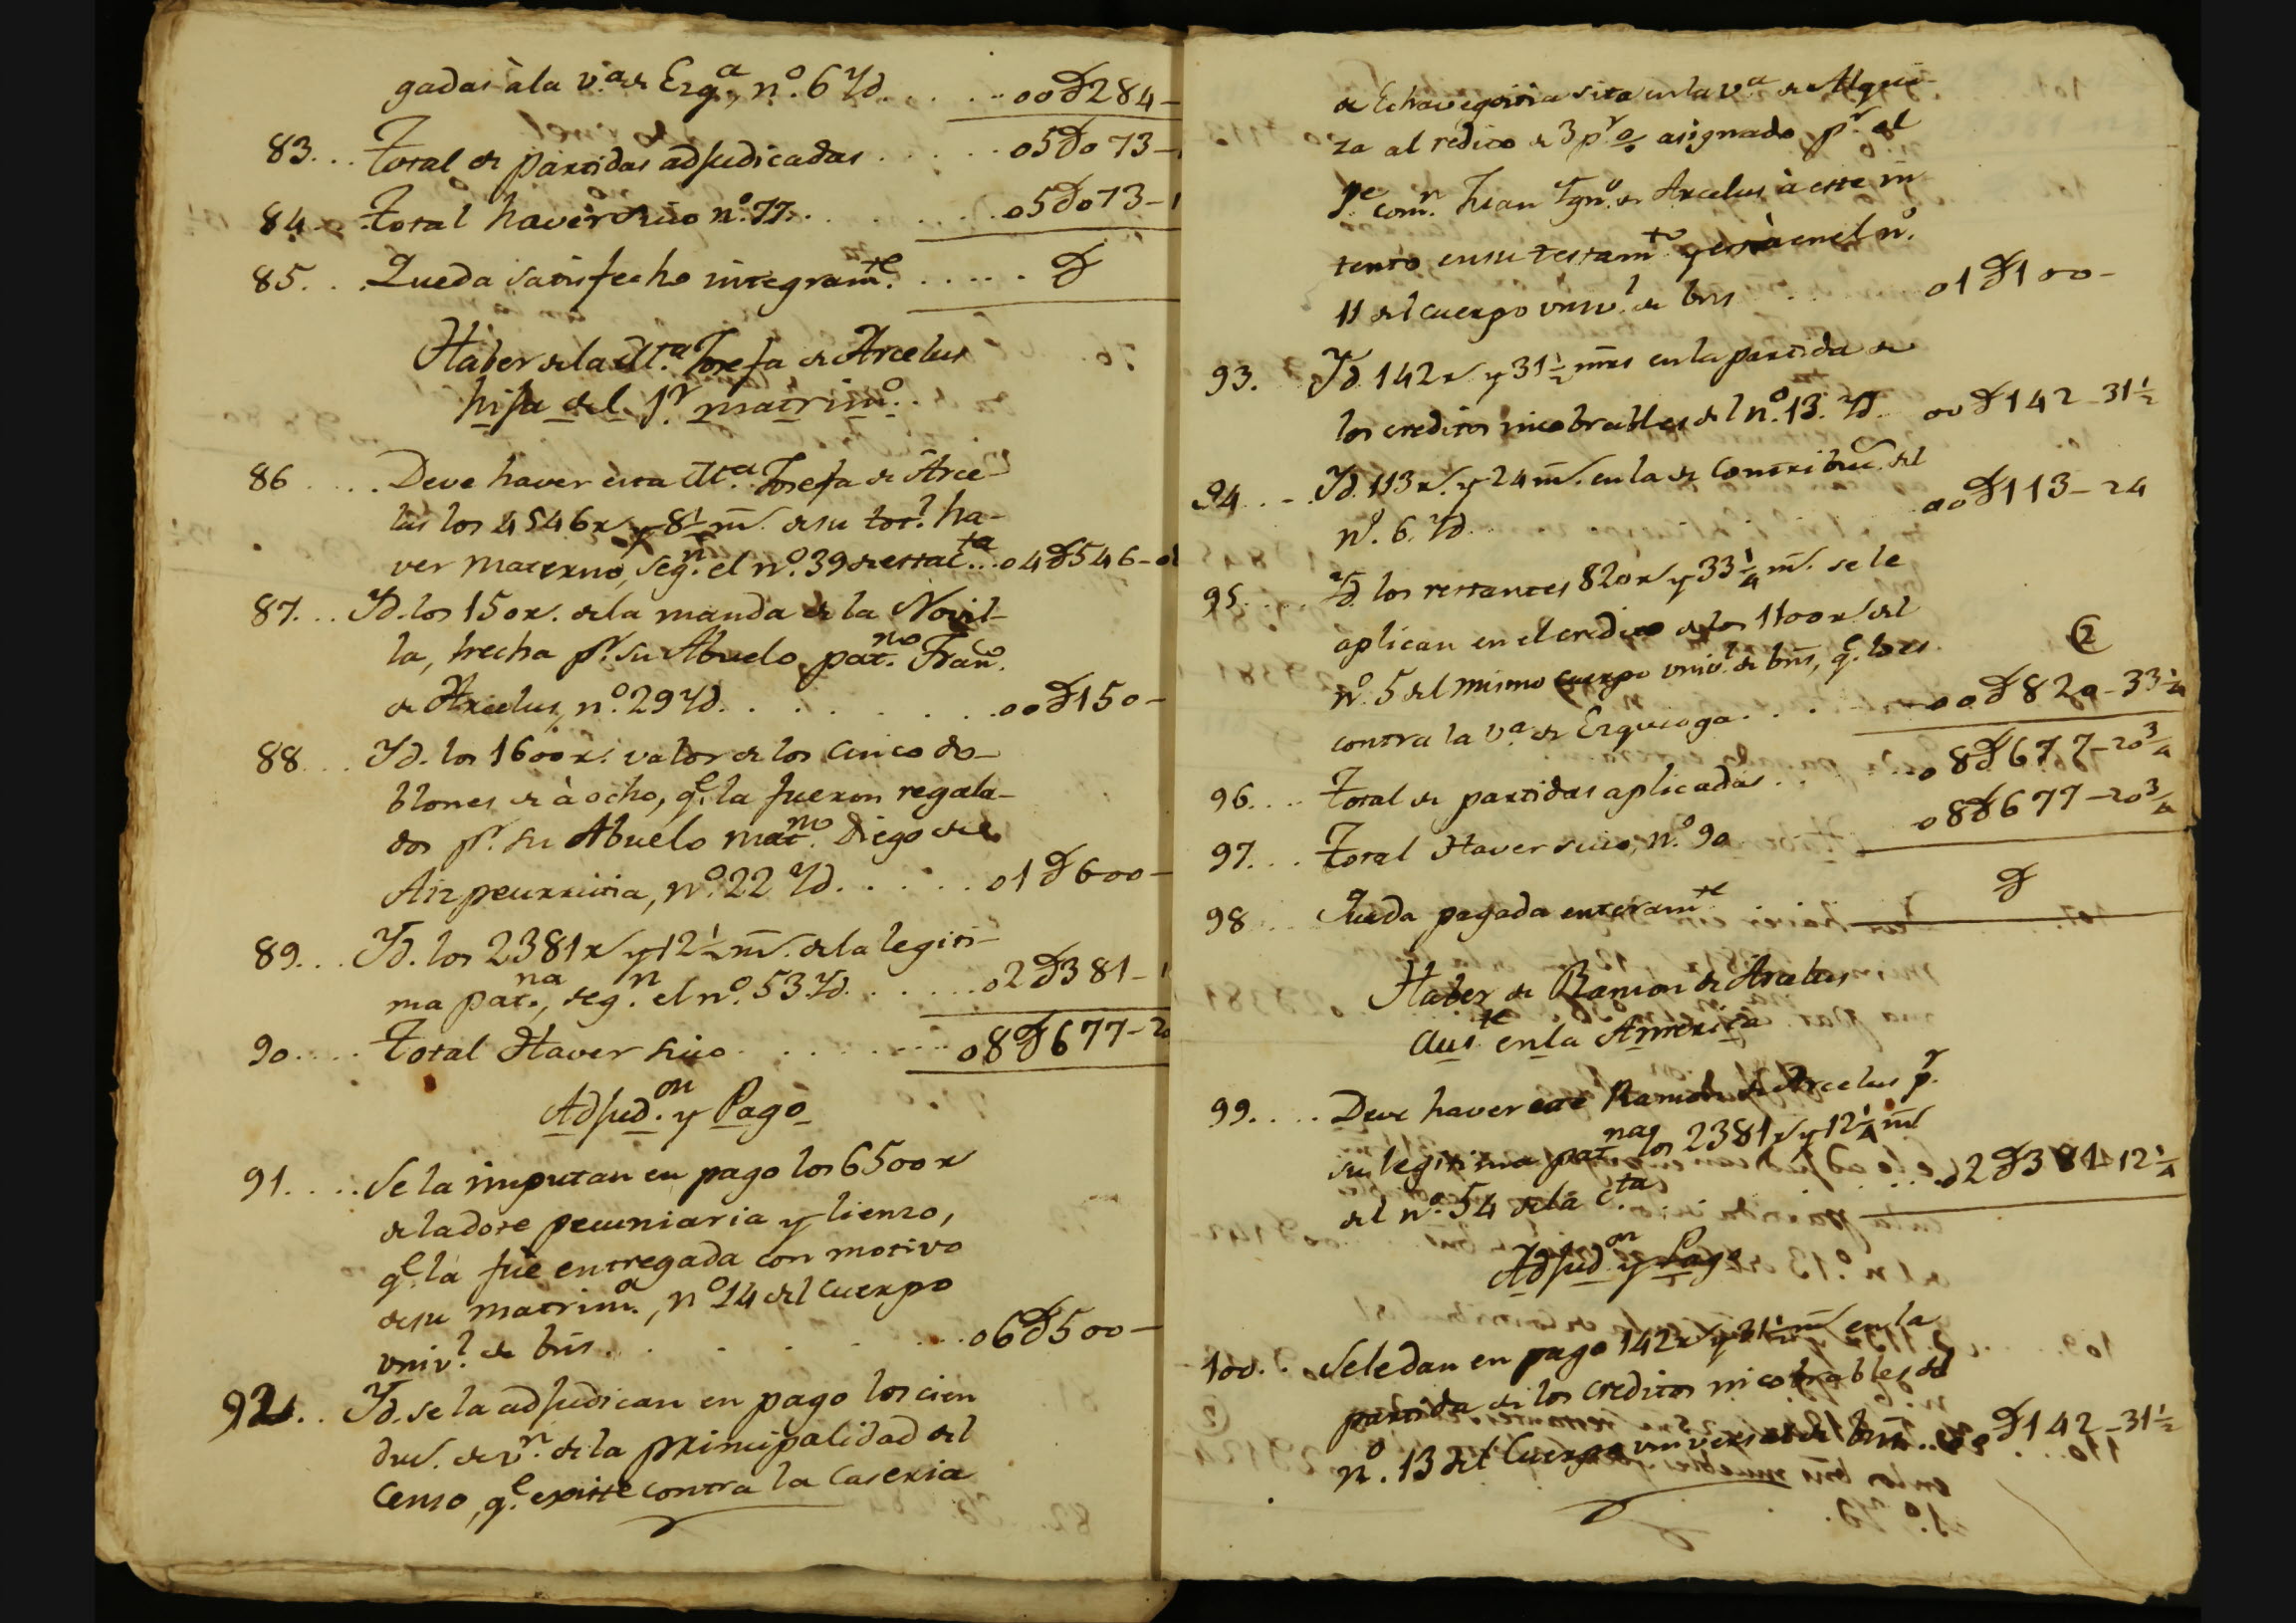 gadas à la v.ª de Ezg.ª, n.º 6 Yd. . . . . . 00D284—
83. . . Total de partidas adjudicadas . . . . . 05D073—
84 . . Total haver suio n.º 77. . . . . . . 05D073—1
85. . . Queda satisfecho integram.te . . . . . D
Haber de la M.ª Josefa de Arcelus
hija del 1.r matrim.º
86 . . . . Deve haver esta M.ª Josefa de Arce-
lus los 4546 r.s y 8½ m.s de su tot.l ha-
ver materno, seg.n el n.º 39 de esta C.ta . . . 04D546—
87. . . Yd. los 150 r.s de la manda de la Novil-
la, hecha p.r su Abuelo pat.no Fran.co
de Arcelus, n.º 29 Yd. . . . . . . . . 00D150—
88 . . . Yd. los 1600 r.s valor de los cinco do-
blones de à ocho, q.e la fueron regala-
dos p.r su Abuelo mat.no Diego de
Aizpeurrutia, n.º 22 Yd. . . . . . 01D600—
89. . . Yd. los 2381 r.s y 12½ m.s de la legiti-
ma pat.na, seg.n el n.º 53 Yd. . . . . . 02D381—1
90. . . . . Total Haver suio . . . . . . . . . 08D677—20
Adjud.on y Pago
91. . . . . Se la imputan en pago los 6500 r.s
de la dote pecuniaria y lienzo,
q.e la fue entregada con motivo
de su matrim.º, n.º 14 del cuerpo
univ.l de bns. . . . . . . . . 06D500—
92. . . Yd. se la adjudican en pago los cien
duc.s de v.n de la principalidad del
Censo, q.e existe contra la Caseria
de Echavegoitia sita en la v.ª de Alqui-
za al redito de 3 p.r % asignado p.r el
p.e com.n Juan Ygn.º de Arcelus à este in-
tento en su testam.to y està en el n.º
11 del cuerpo univ.l de bns . . . 01D100—
93. . . Yd. 142 r.s y 31½ mrs en la partida de
los creditos incobrables del n.º 13. Yd. 00D142—31½
94. . - . Yd. 113 r.s y 24 m.s en la de Contribuc.n del
n.º 6. Yd. . . . . 00D113—24
95. . . . Yd. los restantes 820 r.s y 33¼ m.s se le
aplican en el credito de los 1100 r.s del
n.º 5 del mismo cuerpo univ.l de bns, q.e lo es
contra la v.ª de Ezquioga. . . . 00D820—33¼
96. . . . Total de partidas aplicadas . . . . 08D677—20¾
97. . . Total Haver suio, n.º 90 08D677—20¾
98 . . . Queda pagada enteram.te D
Haber de Ramon de Arcelus
aus.te en la America
99. . . . . Deve haver este Ramon de Arcelus p.r
su legitima pat.na los 2381 r.s y 12¼ m.s
del n.º 54 de la C.ta . . . . . 02D381—12¼
Adjud.on y Pago
100. . Se le dan en pago 142 r.s y 31½ m.s en la
partida de los creditos incobrables del
n.º 13 del Cuerpo universal de bns . . 00D142—31½